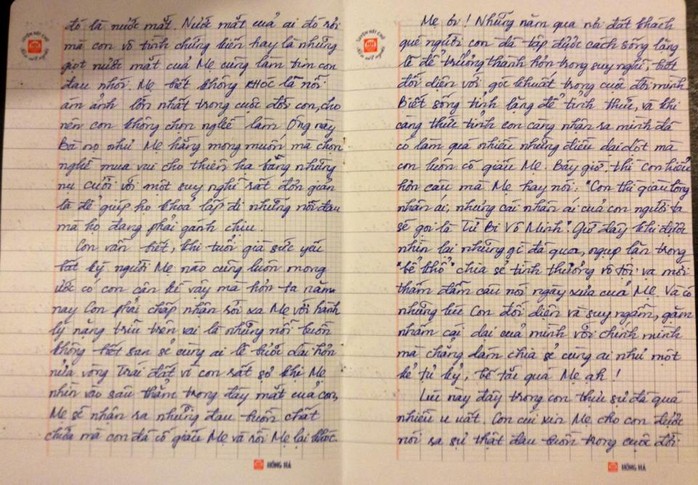 đó là nước mắt. Nước mắt của ai đó rồi
mà con vô tình chứng kiến hay là những
giọt nước mắt của Mẹ cũng làm tim con
đau nhói. Mẹ biết không khóc là nỗi
ám ảnh lớn nhất trong cuộc đời con, cho
nên con không chọn nghề làm Ông này
Bà nọ như Mẹ hằng mong muốn mà chọn
nghề mua vui cho thiên hạ bằng những
nụ cười với một suy nghĩ rất đơn giản
là để giúp họ khoả lấp đi những nỗi đau
mà họ đang phải gánh chịu.
Con vẫn biết, khi tuổi già sức yếu
bất kỳ người Mẹ nào cũng luôn mong
ước có con cận kề vậy mà hơn ba năm
nay Con phải chấp nhận rời xa Mẹ với hành
lý nặng trĩu trên vai là những nỗi buồn
không biết san sẻ cùng ai lê bước dài hơn
nửa vòng Trái đất vì con rất sợ khi Mẹ
nhìn vào sâu thẳm trong đáy mắt của con,
Mẹ sẽ nhận ra những đau buồn chất
chứa mà con đã cố giấu Mẹ và rồi Mẹ lại khóc
HỒNG HÀ
Mẹ ơi! Những năm qua nơi đất khách
quê người con đã tập được cách sống lặng
lẽ để trưởng thành hơn trong suy nghĩ, biết
đối diện với góc khuất trong cuộc đời mình
Biết sống tĩnh lặng để tỉnh thức, và khi
càng thức tỉnh con càng nhận ra mình đã
có làm quá nhiều những điều dại dột mà
con luôn cố giấu Mẹ. Bây giờ thì con hiểu
hơn câu mà Mẹ hay nói: "Con thì giàu lòng
nhân ái, nhưng cái nhân ái của con người ta
sẽ gọi là Từ Bi Vô Minh". Giờ đây khi
nhìn lại những gì đã qua, ngụp lặn trong
"bể khổ" chia sẻ tình thương vô tội và mới
thấm đẫm câu nói ngày xưa của Mẹ. Và có
những lúc Con đối diện và suy ngẫm, gặm
nhấm cái dại của mình với chính mình
mà chẳng dám chia sẻ cùng ai như một
kẻ tự kỷ, bế tắc quá Mẹ ah!
Lúc này đây trong con thực sự đã quá
nhiều u uất. Con cúi xin Mẹ cho con được
nói ra sự thật đau buồn trong cuộc đời
HỒNG HÀ